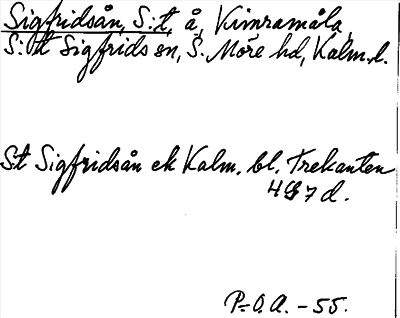 Sigfridsån, S:t, å, Kimramåla,
S:t Sigfrids sn, S. Möre hd, Kalm.l.
S:t Sigfridsån ek Kalm. bl. Trekanten
4G7d.
P-O.A. -55.